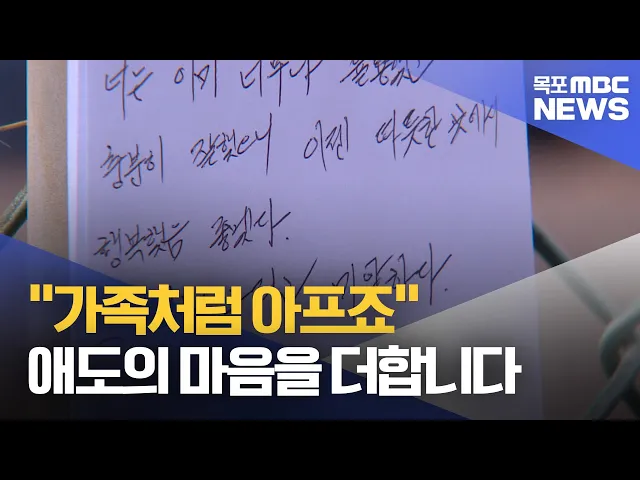 너는 이미 너무나
충분히 잘했으니 이젠 따뜻한 곳에서
행복했음 좋겠다.
미안하다.
목포MBC
NEWS
"가족처럼 아프죠"
애도의 마음을 더합니다